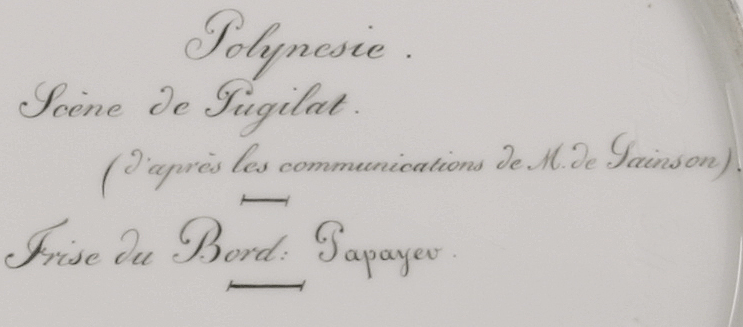 Polynesie.
Scène de Pugilat.
(d'après les communications de M. de Sainson).
Frise du Bord: Papayer.